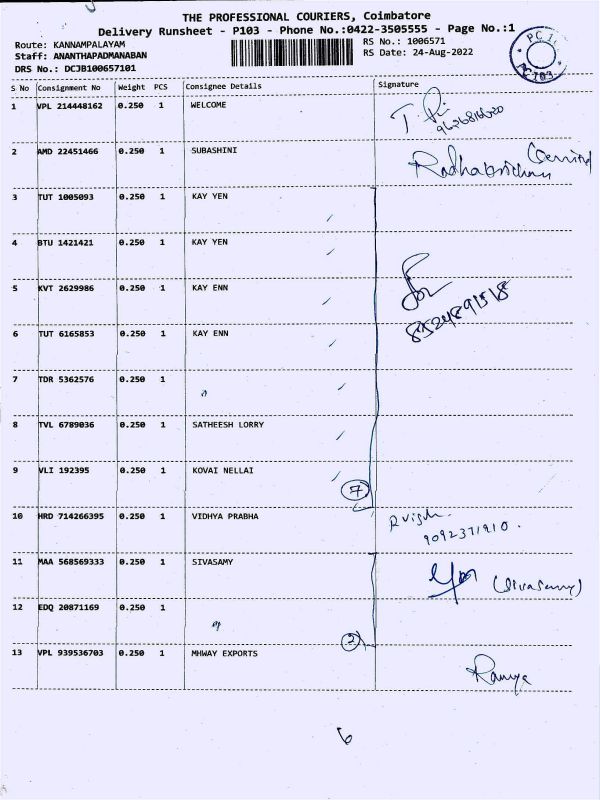 THE PROFESSIONAL COURIERS, Coimbatore
Delivery Runsheet - P103 - Phone No.:0422-3505555 - Page No.:1
Route: KANNAMPALAYAM
RS No.: 1006571
Staff: ANANTHAPADMANABAN
RS Date: 24-Aug-2022
DRS No.: DCJB100657101
S No Consignment No Weight PCS Consignee Details Signature
1 VPL 214448162 0.250 1 WELCOME
2 AMD 22451466 0.250 1 SUBASHINI
Radhakrishnan
3 TUT 1005093 0.250 1 KAY YEN
4 BTU 1421421 0.250 1 KAY YEN
5 KVT 2629986 0.250 1 KAY ENN
8524891518
6 TUT 6165853 0.250 1 KAY ENN
7 TDR 5362576 0.250 1
8 TVL 6789036 0.250 1 SATHEESH LORRY
9 VLI 192395 0.250 1 KOVAI NELLAI
7
10 HRD 714266395 0.250 1 VIDHYA PRABHA
9092371910.
11 MAA 568569333 0.250 1 SIVASAMY
(Sivasamy)
12 EDQ 20871169 0.250 1
2
13 VPL 939536703 0.250 1 MHWAY EXPORTS
Ramya